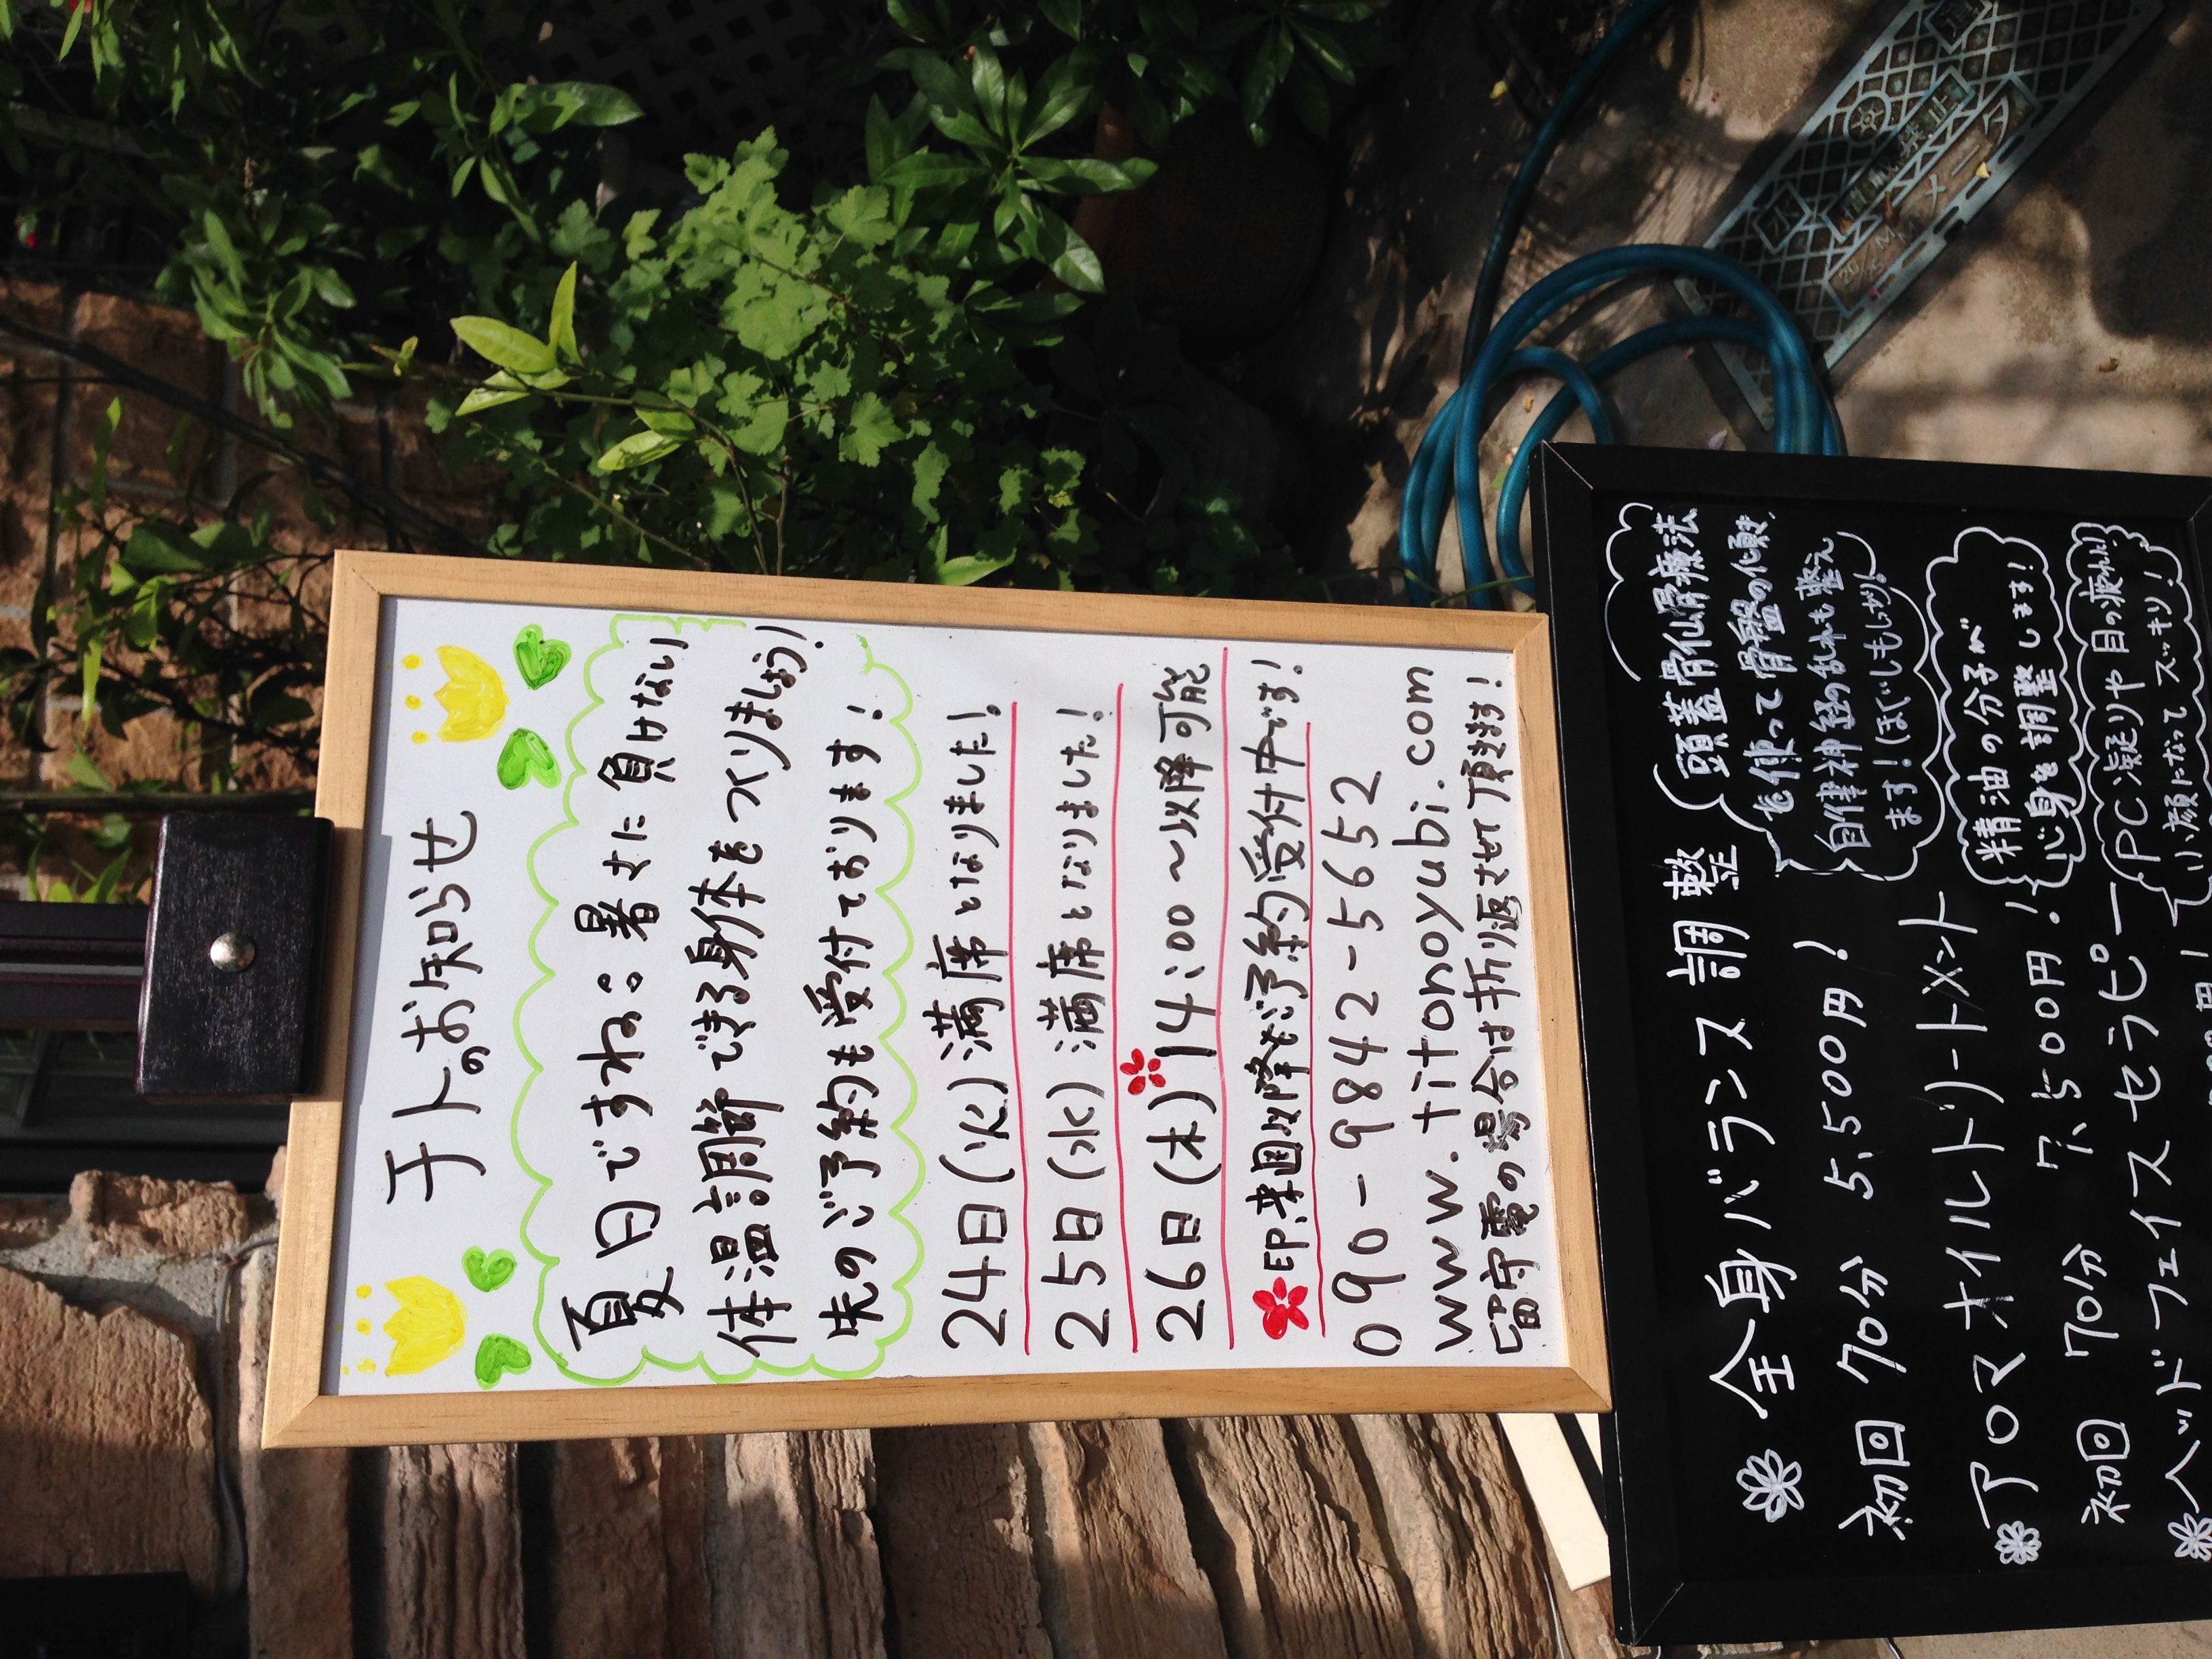 チトのお知らせ
夏日ですね。。暑さに負けない
体温調節できる身体をつくりましょう!
先のご予約も受付ております!
24日(火)満席となりました!
25日(水)満席となりました!
26日(木)14:00〜以降可能
EP.来週以降もご予約受付中です!
090-9842-5652
www.titonoyubi.com
留守電の場合は折り返させて頂きます!
全身バランス調整
初回 70分 5,500円!
頭蓋骨仙骨療法
を使って骨盤の傾き、
自律神経の乱れも整え
ます!ほぐしもしっかり!
アロマオイルトリートメント
初回 70分 7,500円!
精油の分子が
心身を調整します!
ヘッドフェイスセラピー
PC凝りや目の疲れに!
小顔になってスッキリ!
水道
メータ